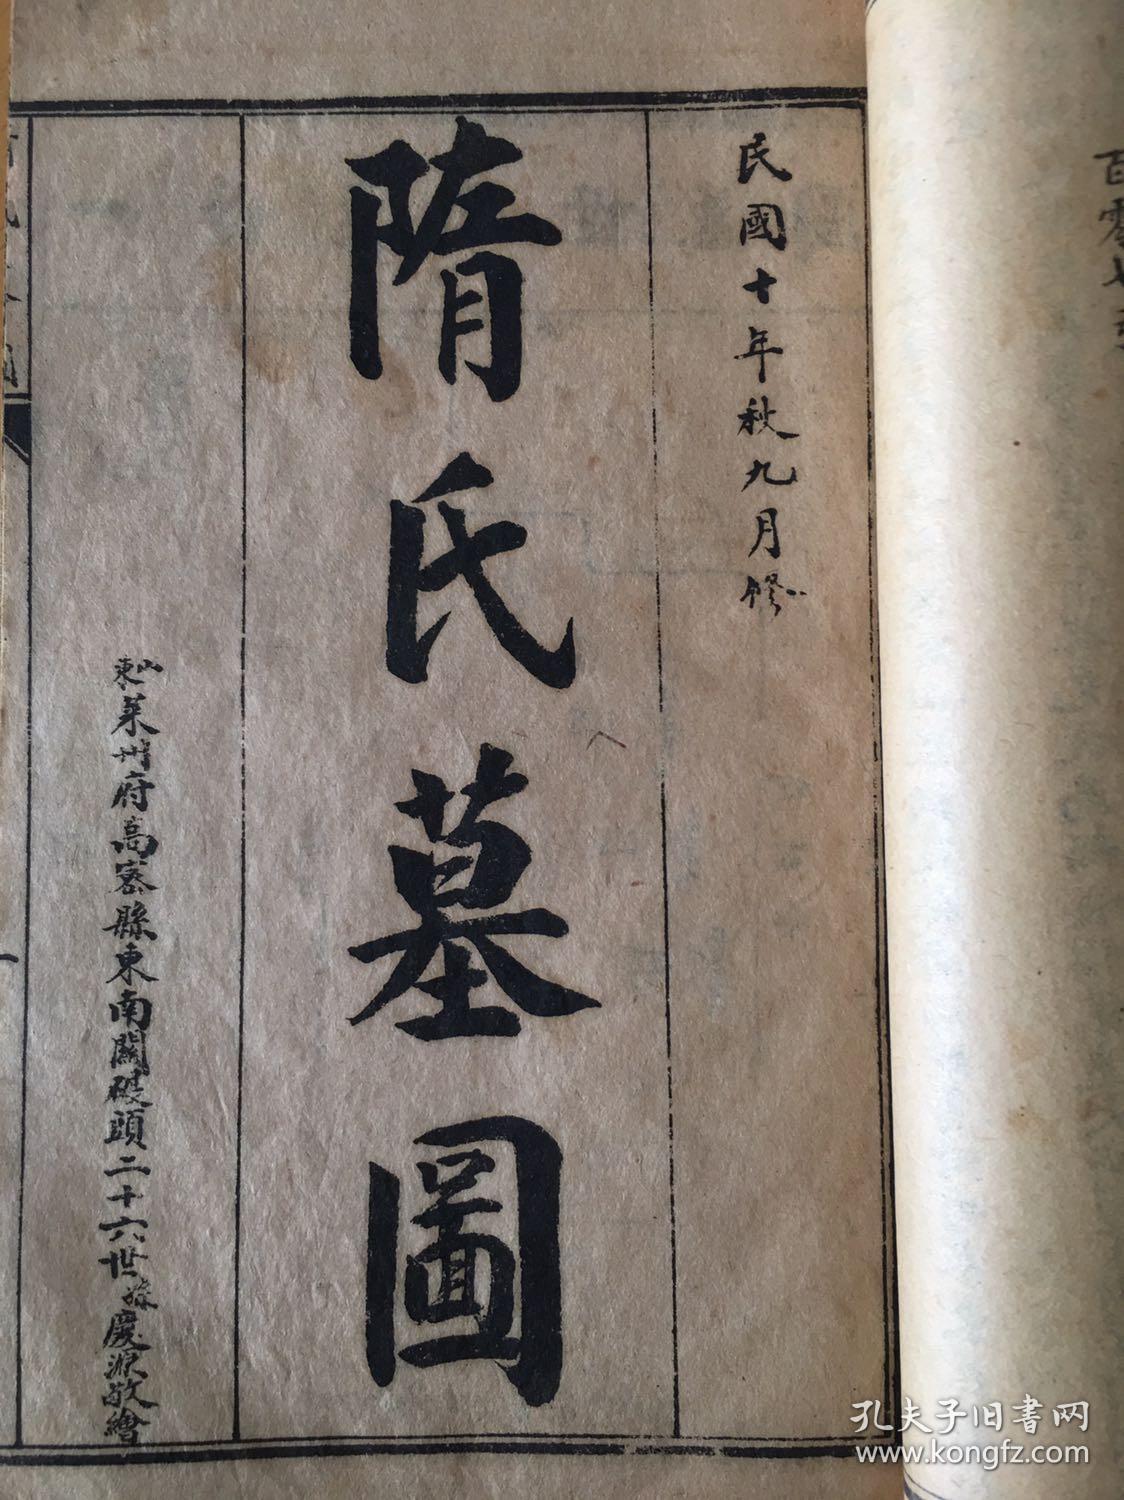 民國十年秋九月修
隋氏墓圖
山東萊州府高密縣東南關坡頭二十六世孫慶源敬繪
孔夫子旧書网
www.kongfz.com